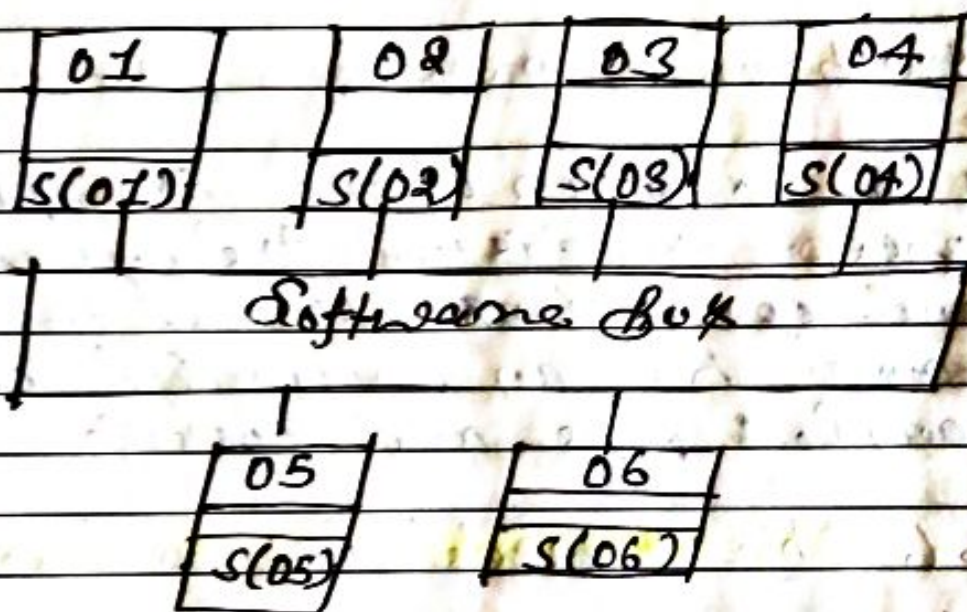 01 02 03 04
S(01) S(02) S(03) S(04)
Software Bus
05 06
S(05) S(06)